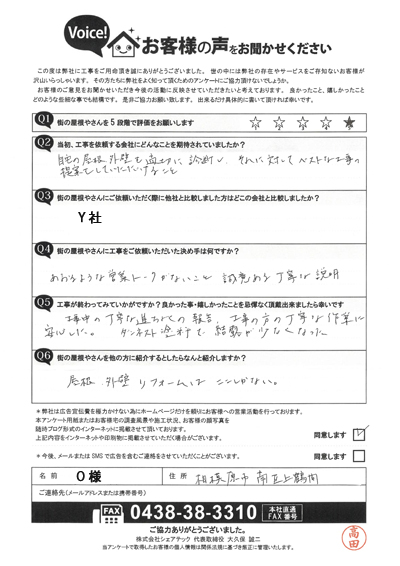 Voice!
お客様の声をお聞かせください
この度は弊社に工事をご用命頂き誠にありがとうございました。世の中には弊社の存在やサービスをご存知ないお客様が
沢山いらっしゃいます。その方たちに弊社をよく知って頂くためのアンケートにご協力頂けないでしょうか。
お客様のご意見をお聞かせいただき今後の活動に反映させていただきたいと考えております。良かったこと、嬉しかったこと
どのような些細な事でも結構です。是非ご協力お願い致します。出来るだけ具体的に書いて頂ければ幸いです。
Q1 街の屋根やさんを5段階で評価をお願いします ☆ ☆ ☆ ☆ ★
Q2 当初、工事を依頼する会社にどんなことを期待されていましたか?
自宅の屋根、外壁を適切に診断し、それに対してベストな工事の
提案をしていただけること
Q3 街の屋根やさんにご依頼いただく際に他社と比較しました方はどこの会社と比較しましたか?
Y社
Q4 街の屋根やさんに工事をご依頼いただいた決め手は何ですか?
あおるような営業トークがないこと 誠意ある丁寧な説明
Q5 工事が終わってみていかがですか?良かった事・嬉しかったことを忌憚なく頂戴出来ましたら幸いです
工事中の丁寧な進ちょくの報告、工事の方の丁寧な作業に
安心した。ガンネスト塗料で結露が少なくなった
Q6 街の屋根やさんを他の方に紹介するとしたらなんと紹介しますか?
屋根、外壁リフォームはここしかない。
*弊社は広告宣伝費を極力かけない為にホームページだけを頼りにお客様への営業活動を行っております。
本アンケート用紙またはお客様宅の調査風景や施工状況、お客様の顔写真を
随時ブログ形式のインターネットに掲載させて頂いております。
上記内容をインターネットや印刷物に掲載させていただく場合がございます。
同意します ✓
*今後、メールまたはSMSで広告を含むご連絡をさせていただくことがございます。
同意します
名前 O様 住所 相模原市南区上鶴間
ご連絡先(メールアドレスまたは携帯番号)
FAX 0438-38-3310 本社直通 FAX番号
ご協力ありがとうございました。
株式会社シェアテック 代表取締役 大久保 誠二
当アンケートで取得したお客様の個人情報は関係法規に基づき厳正に管理いたします。
高田